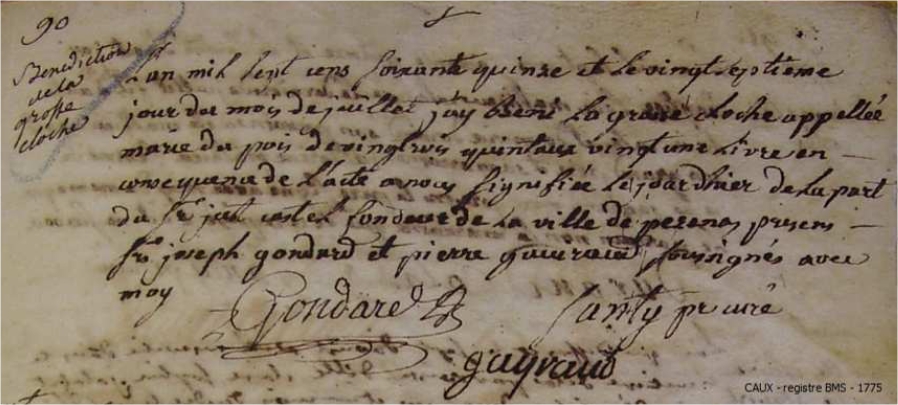 90
Benediction
de la
grosse
cloche
L'an mil sept cens soixante quinze et le vingt septieme
jour du mois de juillet j'ay beni la grosse cloche appellée
marie du pois de vingt trois quintaux vingt une livre en
consequence de l'acte a nous signifiée le jour d'hier de la part
du sr fondeur de la ville de pezenas presens
srs joseph gondard et pierre gueiraud soussignés avec
moy
Gondard
Santy pr curé
gayraud
CAUX - registre BMS - 1775